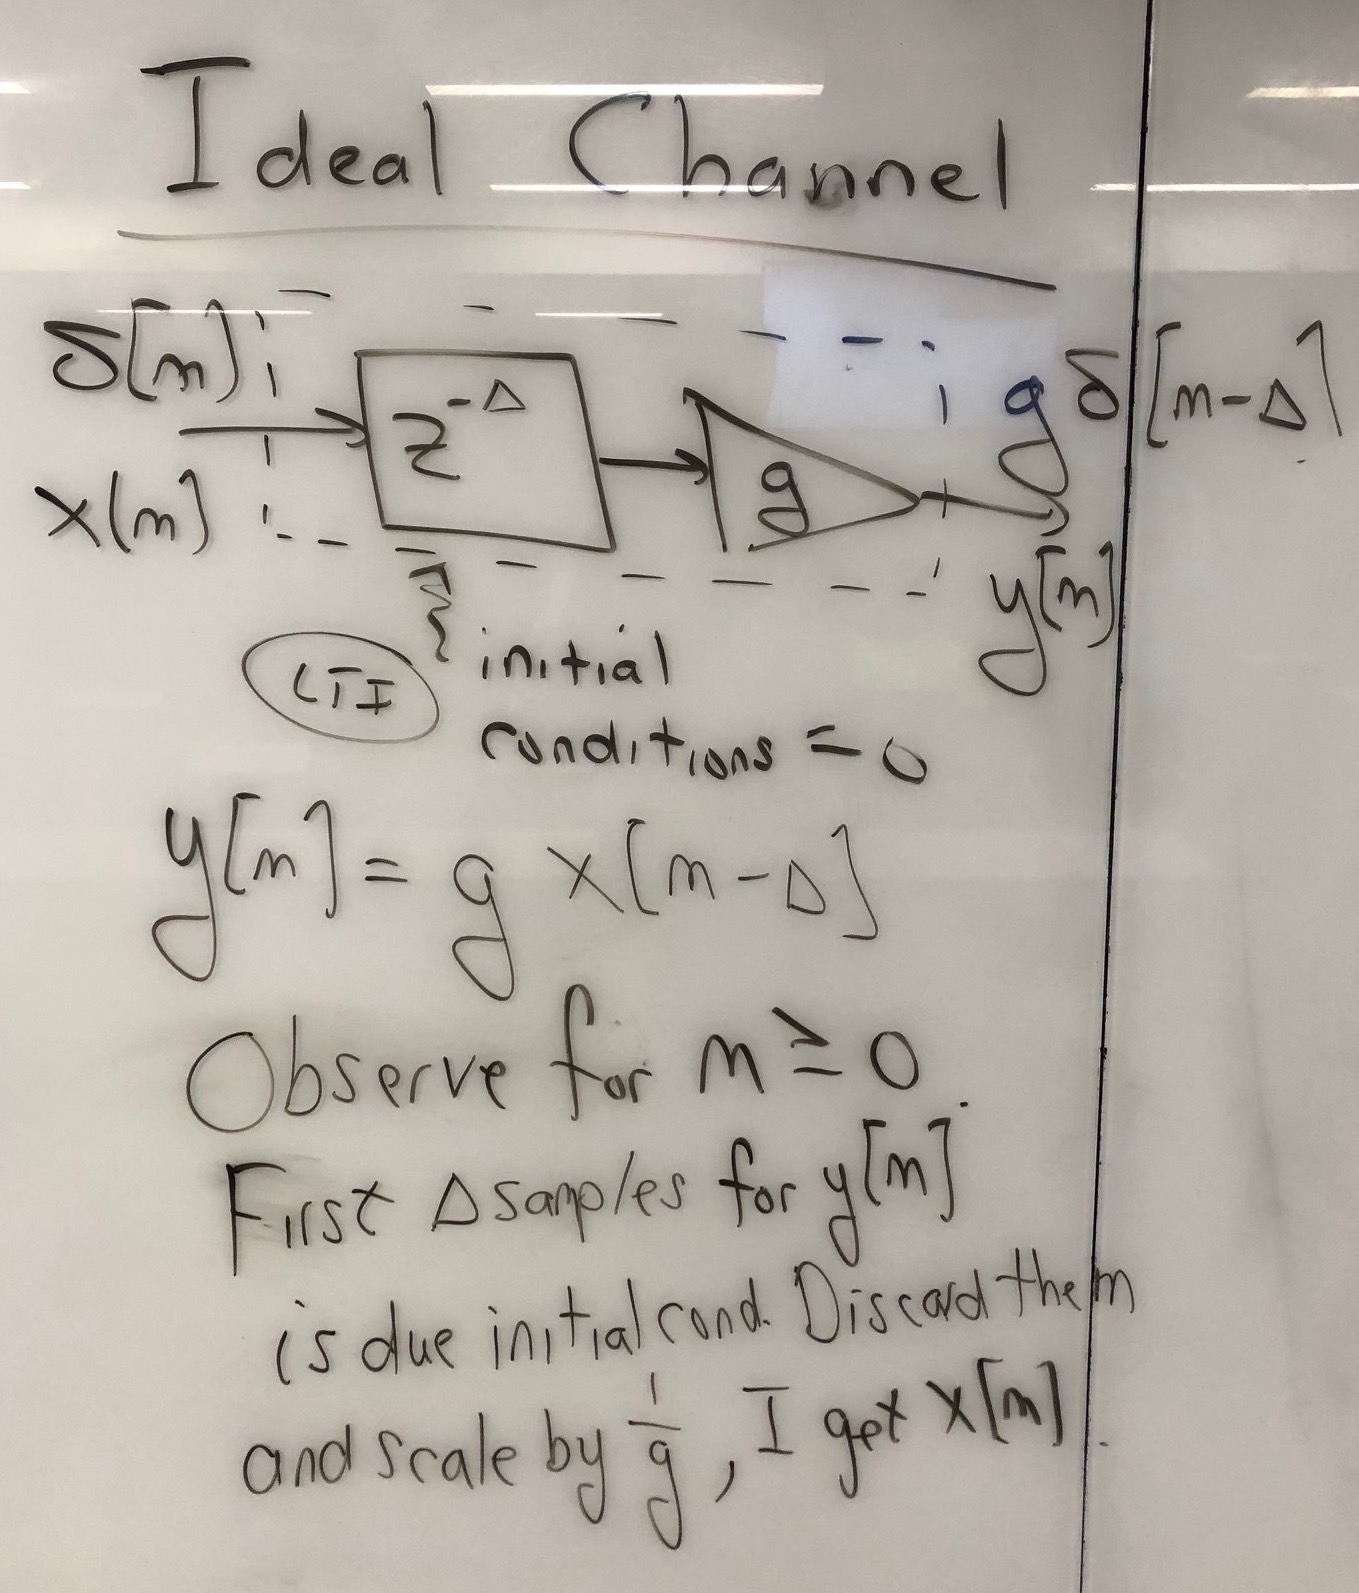 Ideal Channel
δ[m]
x[m]
z^-Δ
g
g δ[m-Δ]
y[m]
LTI
initial
conditions = 0
y[m] = g x[m-Δ]
Observe for m ≥ 0.
First Δ samples for y[m]
is due initial cond. Discard them
and scale by 1/g, I get x[m].